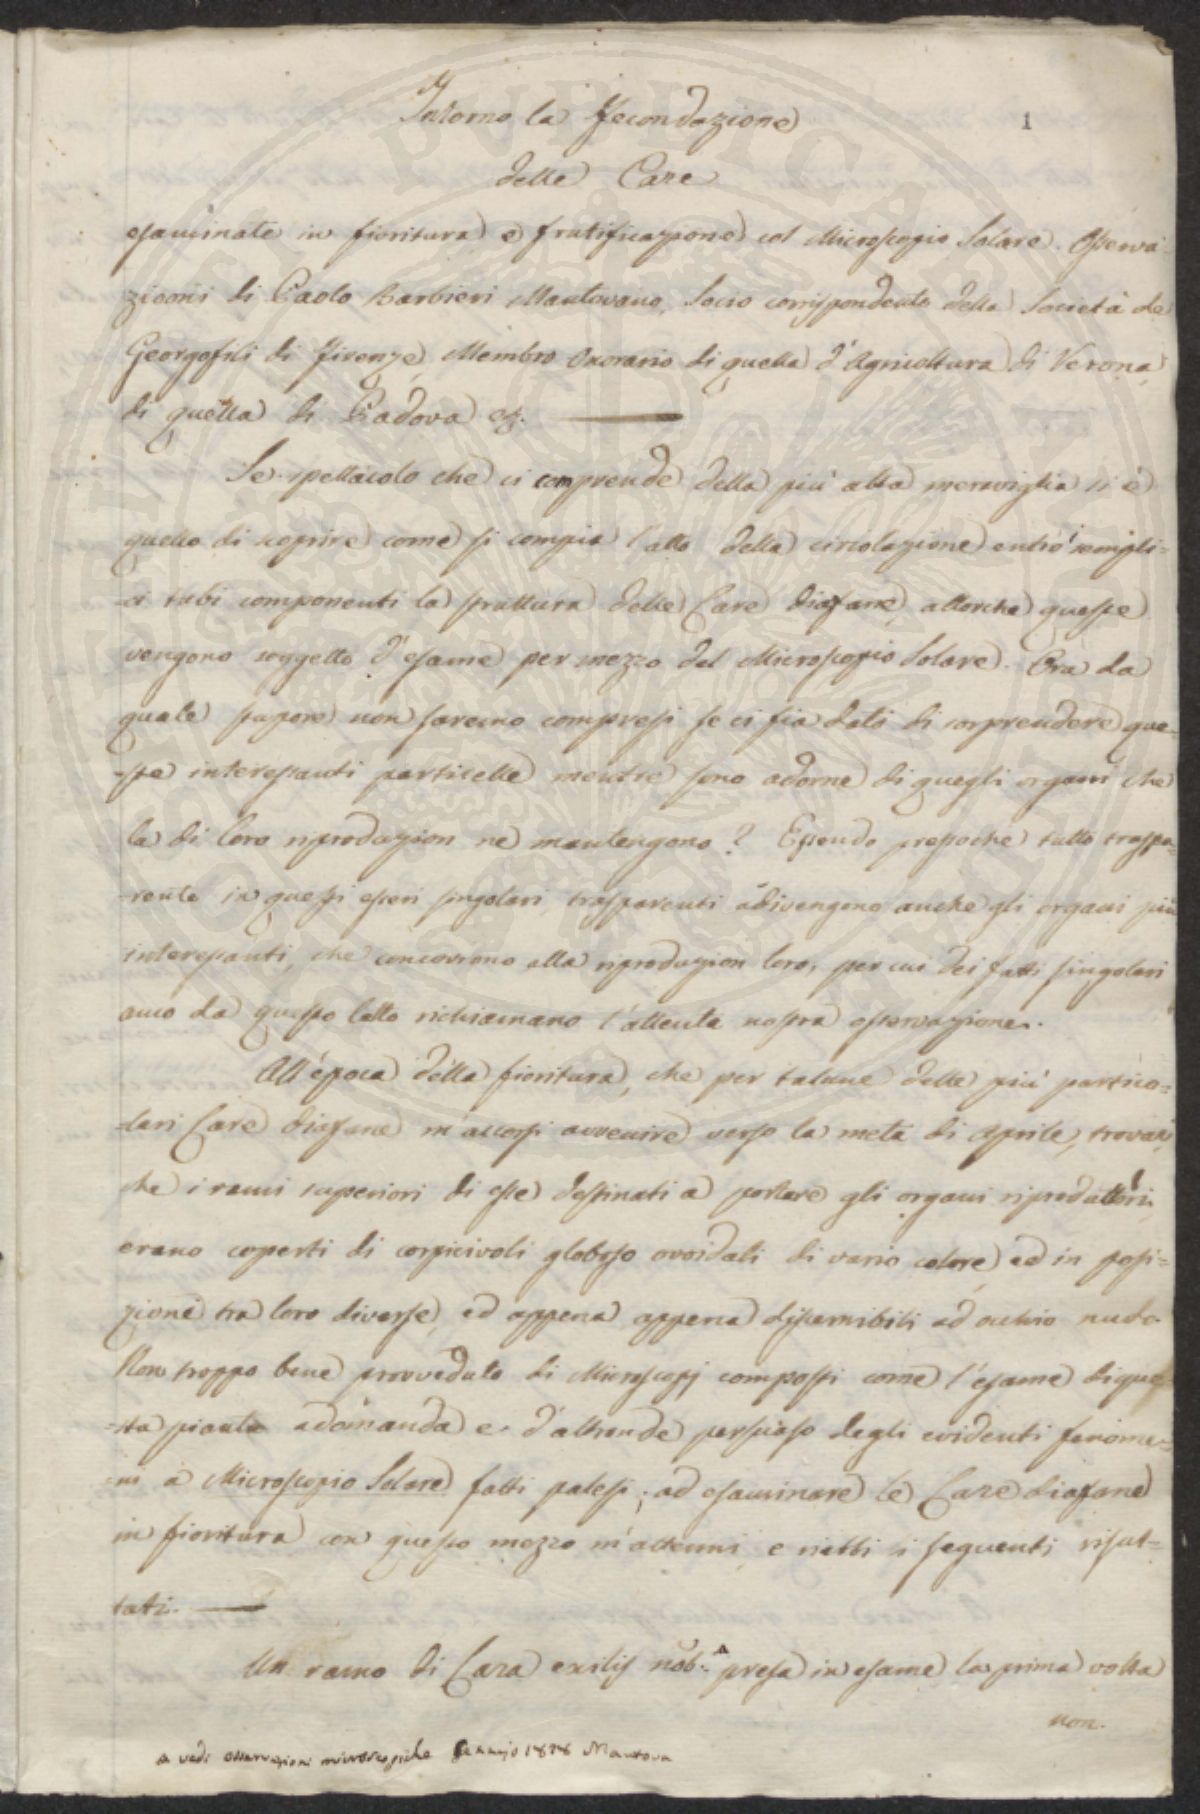 Intorno la Fecondazione
1
delle Care
esaminate in fioritura e frutificazione col Microscopio Solare. Osserva-
zioni di Paolo Barbieri Mantovano, Socio corrispondente della Società de
Georgofili di Firenze, Membro Onorario di quella d'Agricoltura di Verona,
di quella di Padova ec.
Se spettacolo che ci comprende della più alta meraviglia si è
quello di scoprire come si compia l'atto della circolazione entro' sempli=
ci tubi componenti la struttura delle Care diafane, allorché queste
vengono soggetto d'esame per mezzo del Microscopio Solare. Ora da
quale stupore non saremo compresi se ci fia dato di sorprendere que-
-ste interessanti particelle mentre sono adorne di quegli organi che
la di loro riproduzion ne mantengono? Essendo pressoche tutto traspa-
-rente in questi esseri singolari, trasparenti adivengono anche gli organi più
interessanti, che concorrono alla riproduzion loro, per cui dei fatti singolari
anco da questo lato richiamano l'attenta nostra osservazione.
All'época della fioritura, che per talune delle più partico-
-lari Care diafane m'accorsi avvenire verso la metà di Aprile, trovai,
che i rami superiori di esse destinati a portare gli organi riproduttori,
erano coperti di corpicivoli globoso ovoidali di vario colore, ed in posi-
zione tra loro diverse, ed appena appena discernibili ad occhio nudo.
Non troppo bene provveduto di Microscopj composti come l'esame di que-
-sta pianta adomanda e d'altronde persuaso degli evidenti fenome-
-ni a Microscopio Solare fatti palesi; ad esaminare le Care diafane
in fioritura con questo mezzo m'attenni, e n'ebbi i seguenti risul-
tati.
Un ramo di Cara exilis nob: a presa in esame la prima volta
non.
a vedi osservazioni microscopiche Gennajo 1828 Mantova